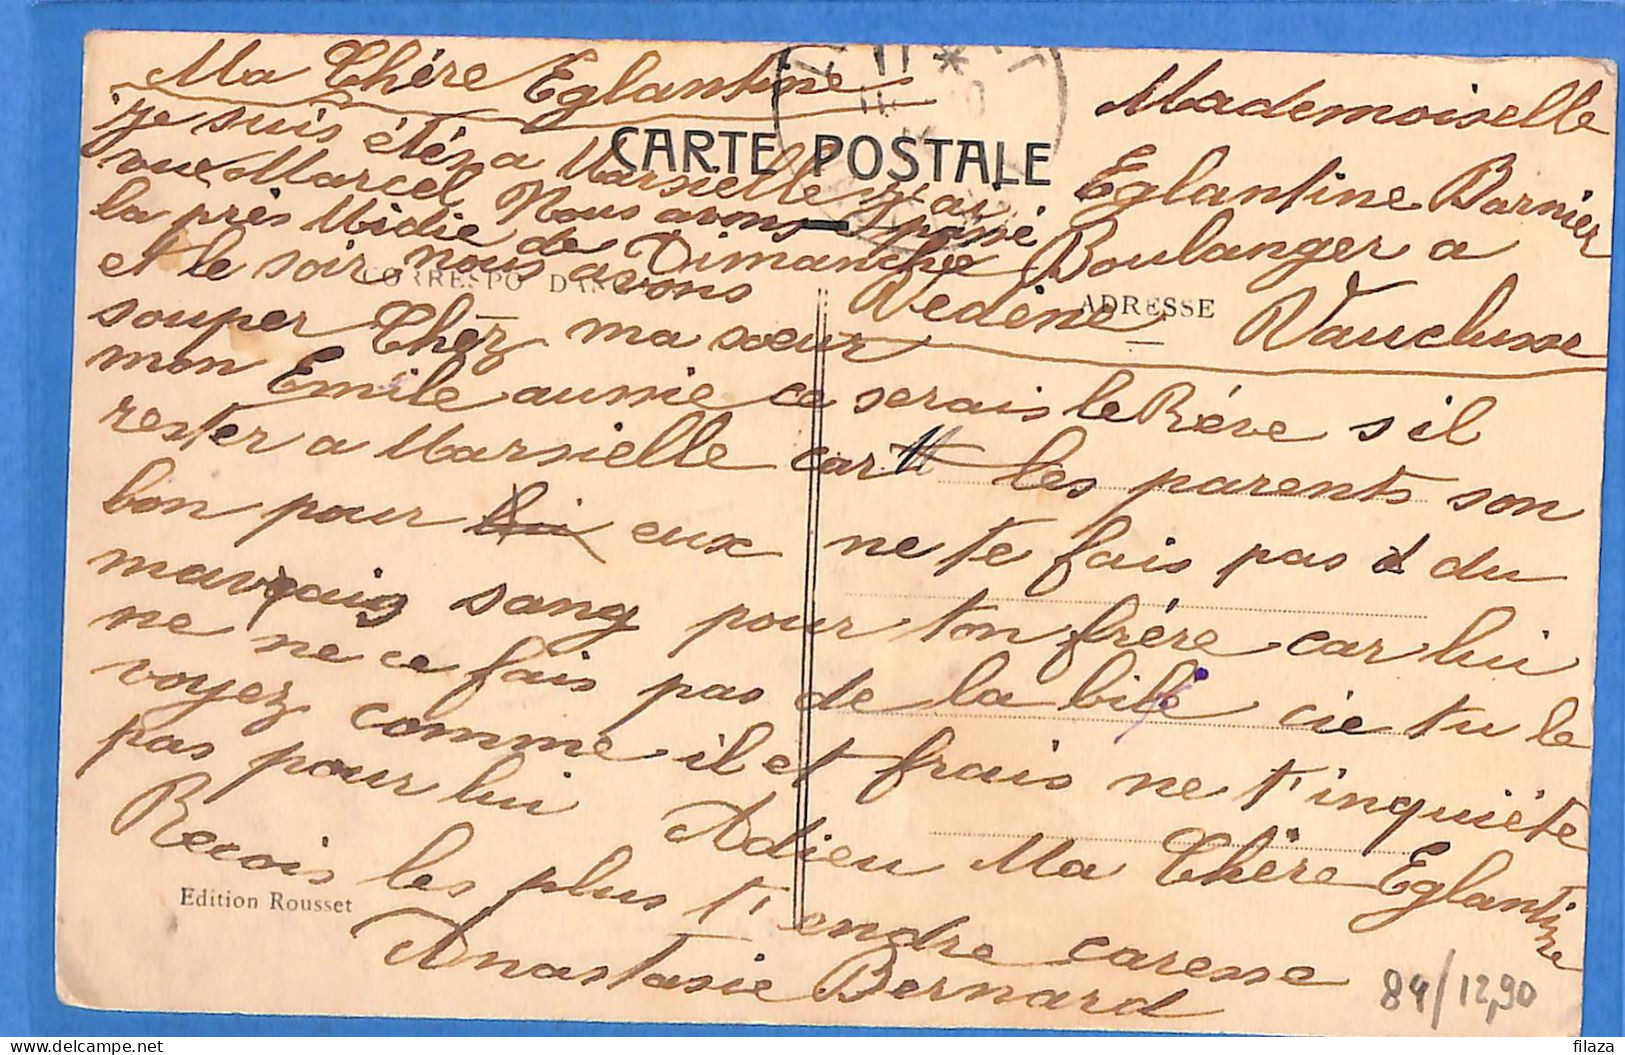 Ma Chère Eglantine
je suis étés a Marsielle j'ai
vue Marcel Nous avons passé
la près Midie de Dimanche
et le soir nous avons
souper Chez ma sœur
mon Emile aussie ce serais le Rêve s il
rester a Marsielle car les parents son
bon pour lui eux ne te fais pas du
mauvais sang pour ton frére car lui
ne ne ce fais pas de la bile cie tu le
voyez comme il et frais ne t'inquiéte
pas pour lui Adieu Ma Chère Eglantine
Recois les plus t'endre caresse
Anastasie Bernard
CARTE POSTALE
CORRESPONDANCE
ADRESSE
Mademoiselle
Eglantine Barnier
Boulanger a
Vedène Vauclusse
Edition Rousset
84/12,90
filaza